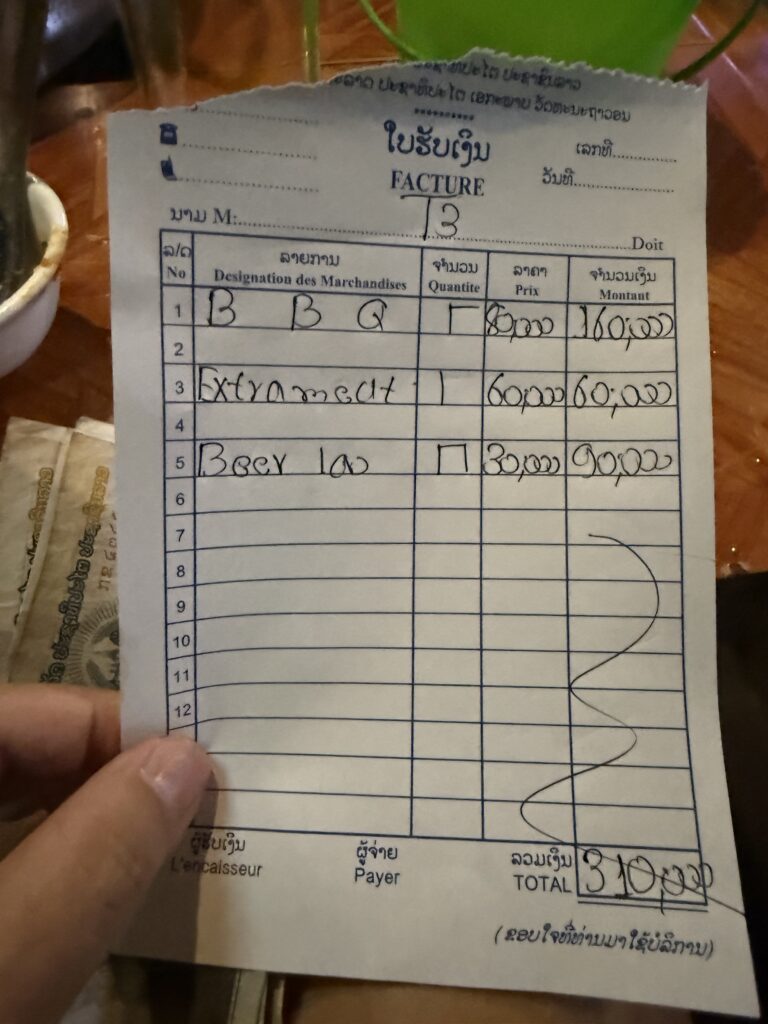 ປະຊາທິປະໄຕ ປະຊາຊົນລາວ
ປະຊາທິປະໄຕ ເອກະພາບ ວັດທະນະຖາວອນ
**********
ໃບຮັບເງິນ
FACTURE
ເລກທີ
ວັນທີ
T3
ນາມ M: Doit
ລ/ດ ລາຍການ ຈຳນວນ ລາຄາ ຈຳນວນເງິນ
No Designation des Marchandises Quantite Prix Montant
1 B B Q 80,000 160,000
2
3 Extra meat 60,000 60,000
4
5 Beer lao 30,000 90,000
6
7
8
9
10
11
12
ຜູ້ຮັບເງິນ ຜູ້ຈ່າຍ ລວມເງິນ
L'encaisseur Payer TOTAL 310,000
(ຂອບໃຈທີ່ທ່ານມາໃຊ້ບໍລິການ)